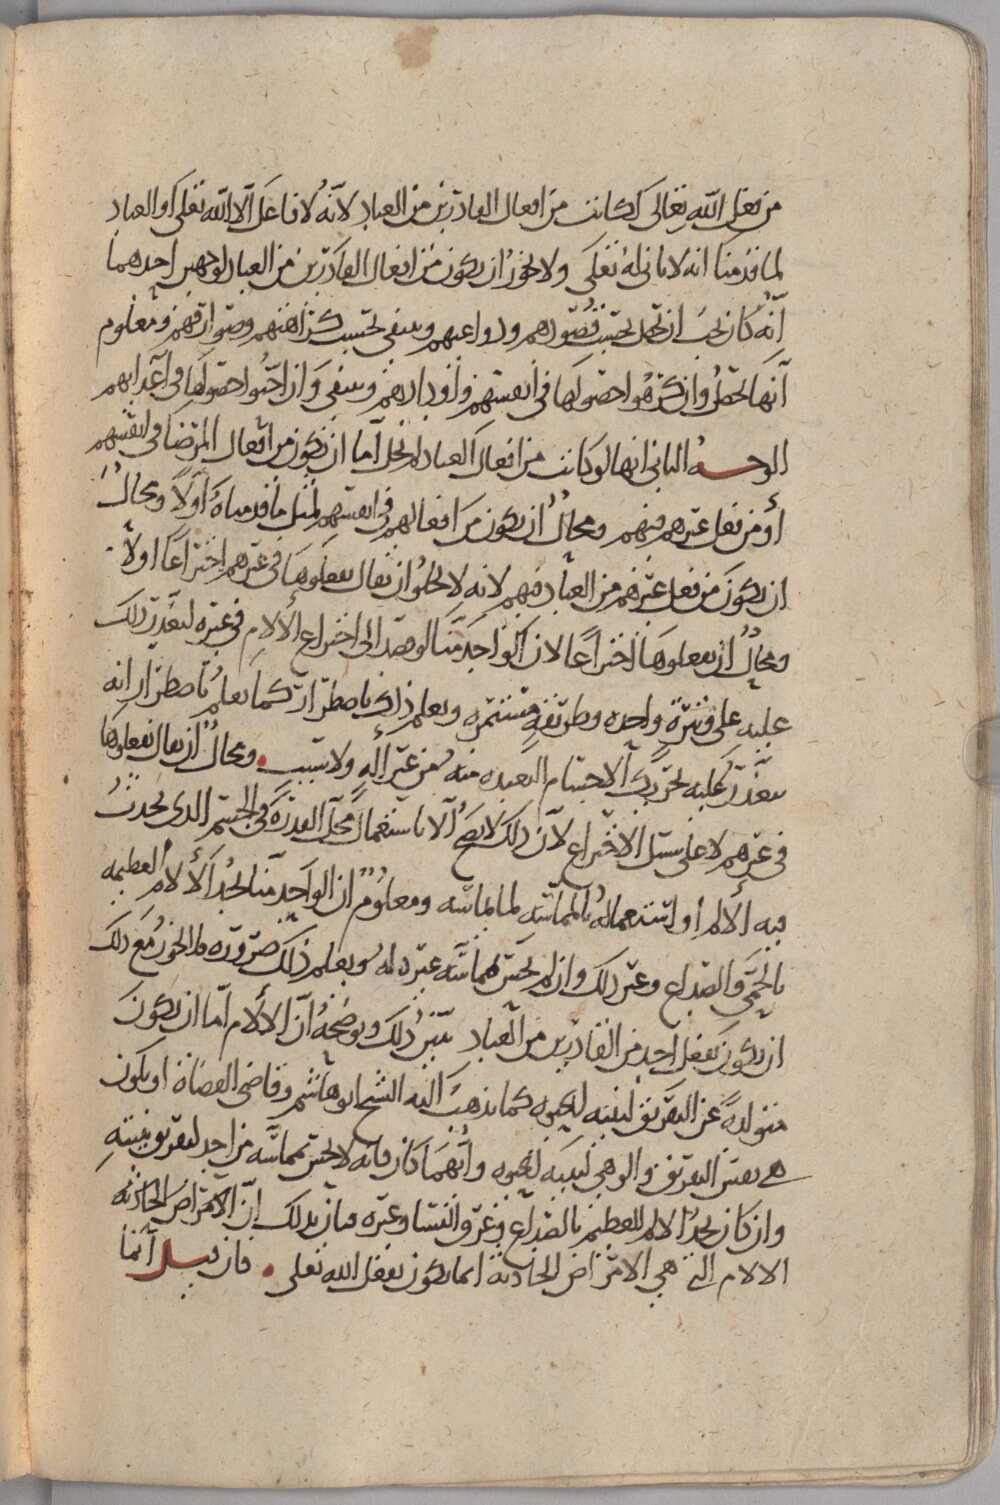 من فعل الله تعالى لكانت من افعال القادرين من العباد لانه لا فاعل الا الله تعالى او العباد
لما قدمنا انه لا ثاني له تعالى ولا يجوز ان يكون من افعال القادرين من العباد لوجهين احدهما
انه كان يجب ان تحصل بحسب قصودهم ودواعيهم وتنتفي بحسب كراهتهم وصوارفهم ومعلوم
انها تحصل وان كرهوا حصولها في انفسهم واودايدهم وتنتفي وان احبوا حصولها في اعدايهم
الوجه الثاني انها لو كانت من افعال العباد لم تخل اما ان تكون من افعال المرضا في انفسهم
او من فعل غيرهم فيهم ومحال ان يكون من افعالهم في انفسهم لمثل ما قدمناه اولا ومحال
ان يكون من فعل غيرهم من العباد فيهم لانه لا يخلو ان يقال يفعلوها في غيرهم اختراعا اولا
ومحال ان يفعلوها اختراعا لان الواحد منا لو قصد الى اختراع الألام في غيره لتعذر ذلك
عليه على وتيرة واحدة وطريقة مستمرة ويعلم ذلك باضطرار كما يعلم باضطرار انه
يتعذر عليه تحريك الاجسام البعيدة منه من غير آلة ولا سبب ومحال ان يقال يفعلوها
في غيرهم لا على سبيل الاختراع لان ذلك لا يصح الا باستعمال محل القدرة في الجسم الذي يحدث
فيه الألم او استعماله بالمماسة لما يماسه ومعلوم ان الواحد منا يجد الألام العظيمة
بالحمى والصداع وغير ذلك وان لم يحس مماسة غيره له ويعلم ذلك ضرورة فلا يجوز مع ذلك
ان يكون بفعل احد من القادرين من العباد يبين ذلك ويوضحه ان الألام اما ان يكون
متولدة عن التفريق لبنية الحيوة كما يذهب اليه الشيخ ابو هاشم وقاضي القضاة او يكون
هي نفس التفريق والوهي لبنية الحيوة وايهما كان فانه لا يحس مماسة من احد لتفريق بنيته
وان كان يجد الالم العظيم بالصداع وعرق النسا وغيره فبان بذلك ان الامراض الحادثة
الالام التي هي الامراض الحادثة انما يكون بفعل الله تعلى فان قيل انما